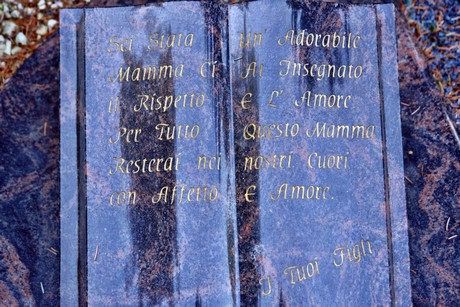 Sei Stata un Adorabile
Mamma Ci Ai Insegnato
il Rispetto E L' Amore
Per Tutto Questo Mamma
Resterai nei nostri Cuori
con Affetto E Amore.
I Tuoi Figli